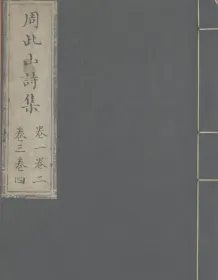 周此山詩集
卷一卷二
卷三卷四